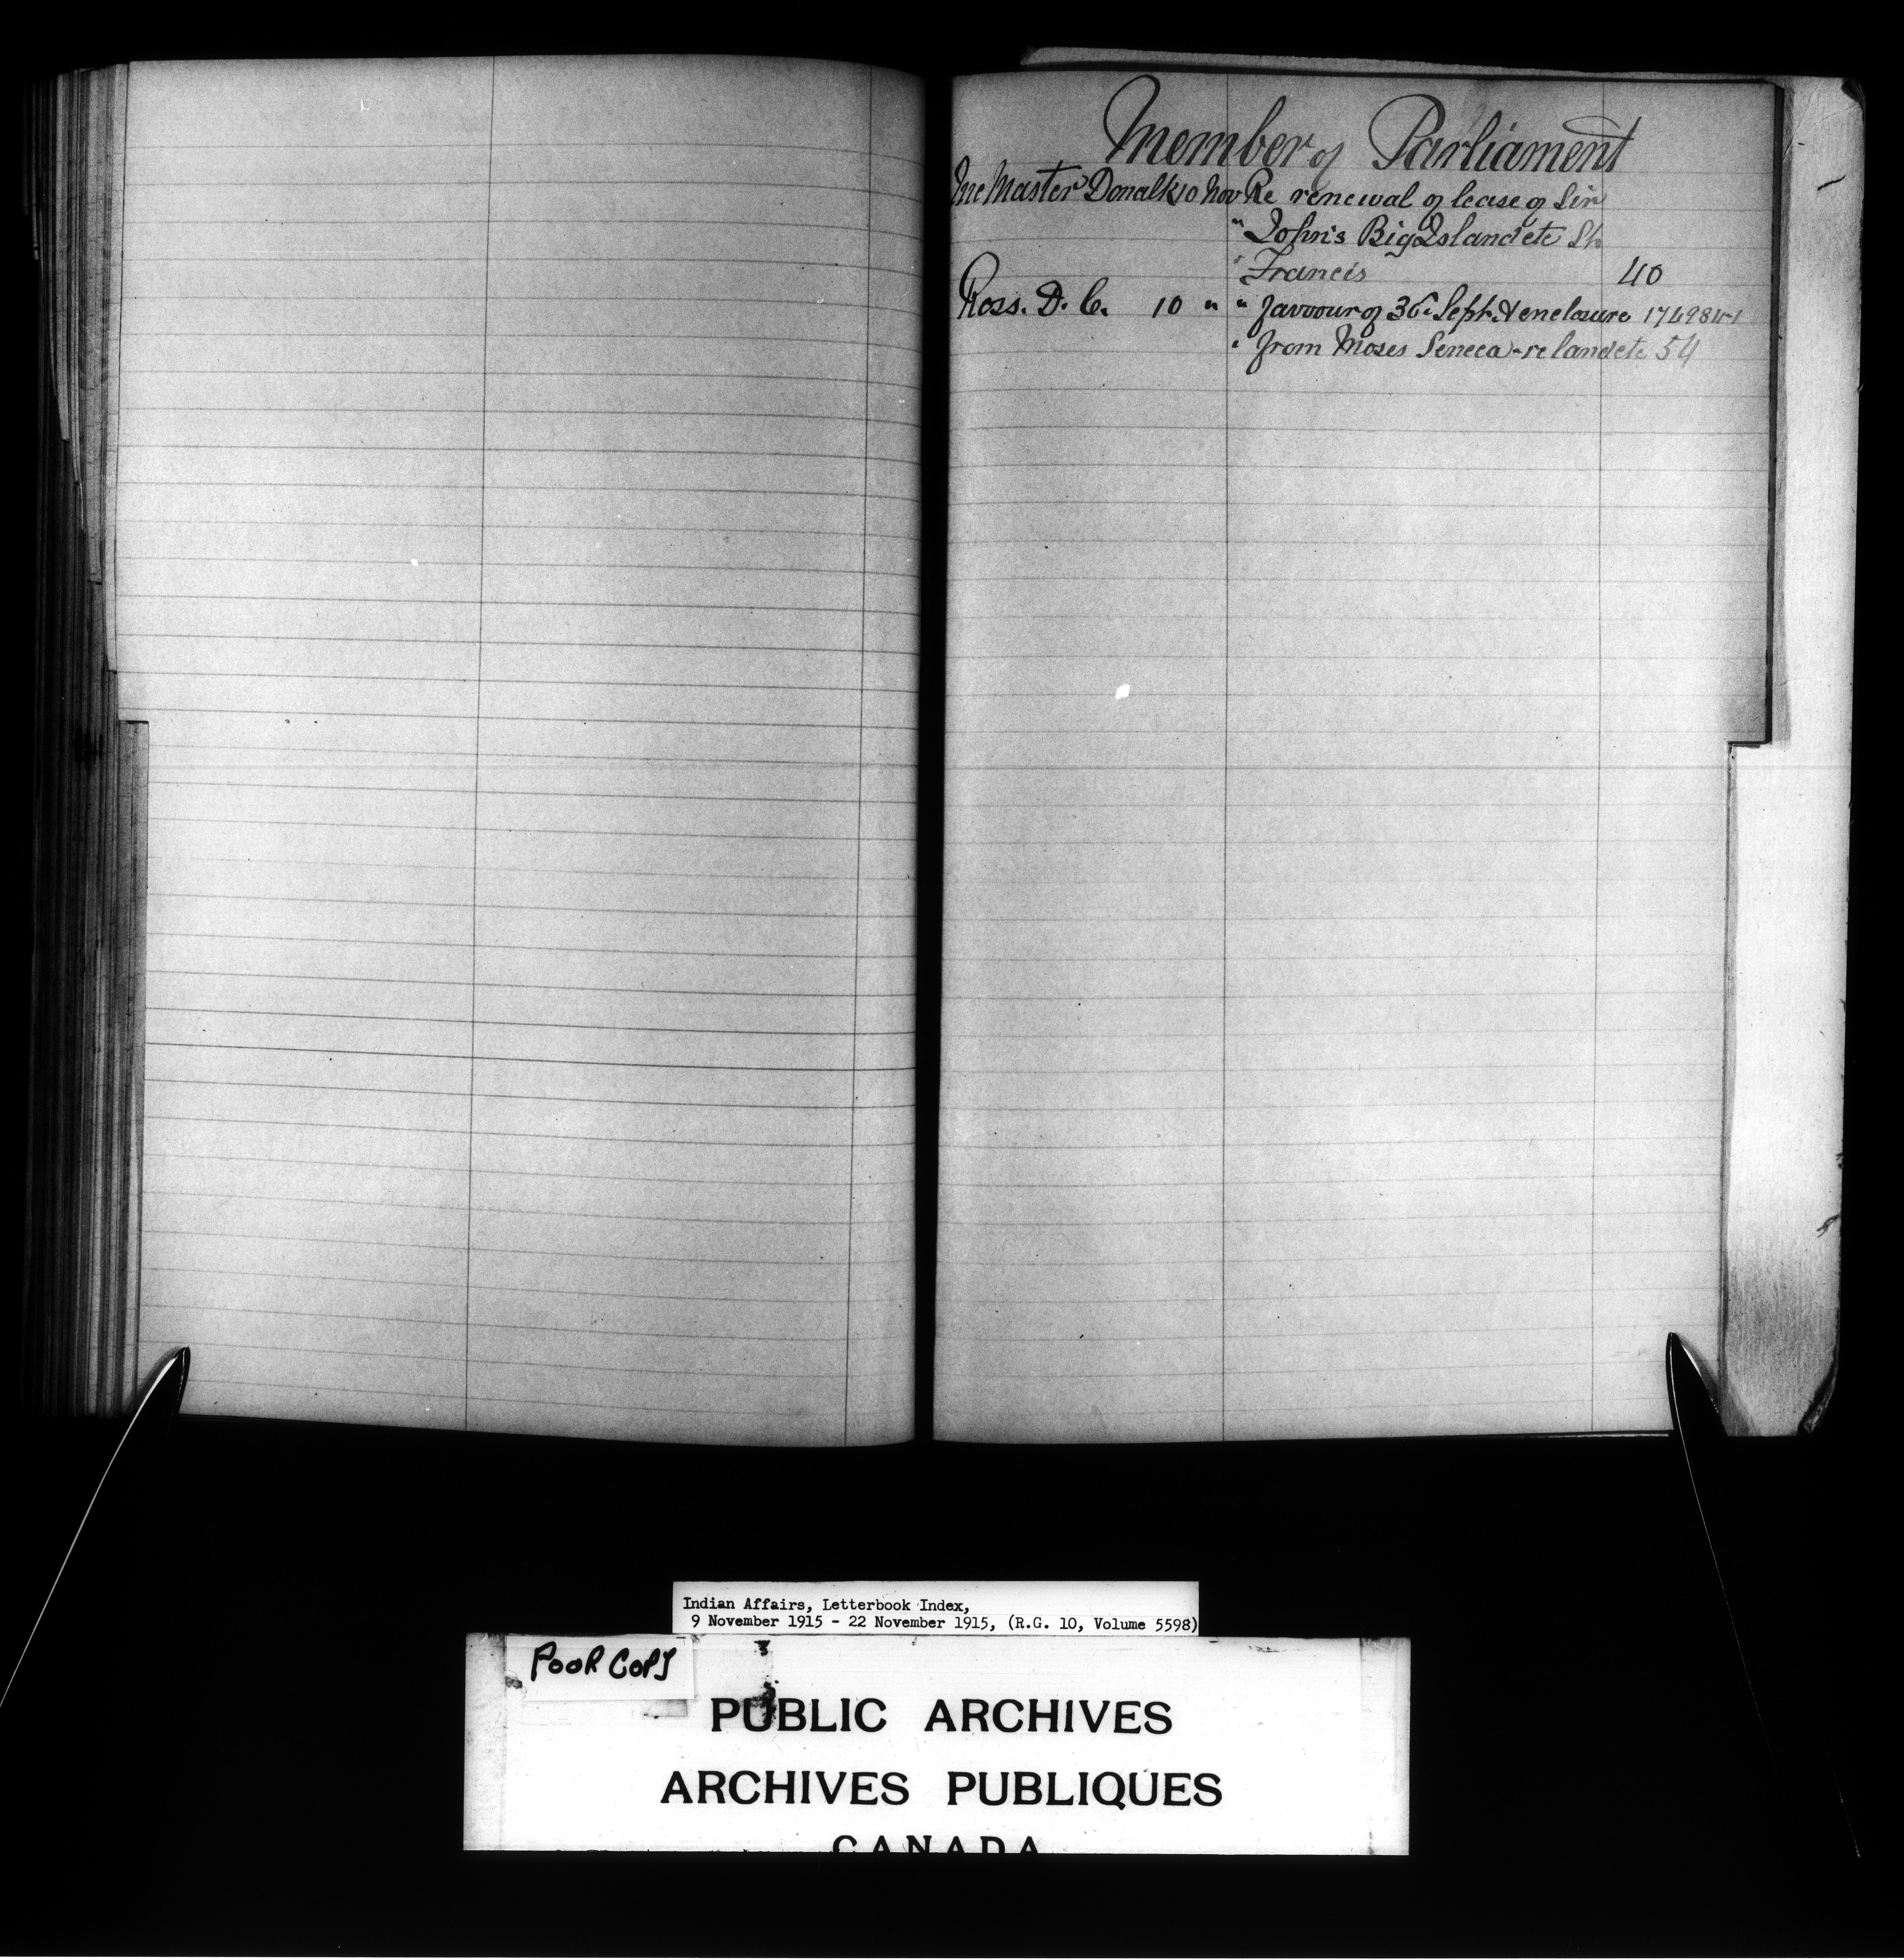 Member of Parliament
McMaster Donald 10 Nov Re renewal of lease of Sir
" John's Big Island etc St
" Francis 40
Ross. D. C. 10 " " favour of 30 Sept. & enclosure
" from Moses Seneca - re land etc 54
Indian Affairs, Letterbook Index,
9 November 1915 - 22 November 1915, (R.G. 10, Volume 5598)
POOR COPY
PUBLIC ARCHIVES
ARCHIVES PUBLIQUES
CANADA